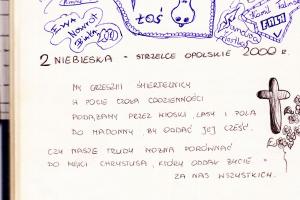 EWA
Nowrot
2000
ŁOŚ
Kamil
2 NIEBIESKA - STRZELCE OPOLSKIE 2000 r.
MY GRZESZNI ŚMIERTELNICY
W POCIE CZOŁA CODZIENNOŚCI
PODĄŻAMY PRZEZ WIOSKI, LASY I POLA
DO MADONNY, BY ODDAĆ JEJ CZEŚĆ.
CZY NASZE TRUDY MOŻNA PORÓWNAĆ
DO MĘKI CHRYSTUSA, KTÓRY ODDAŁ ŻYCIE
ZA NAS WSZYSTKICH.